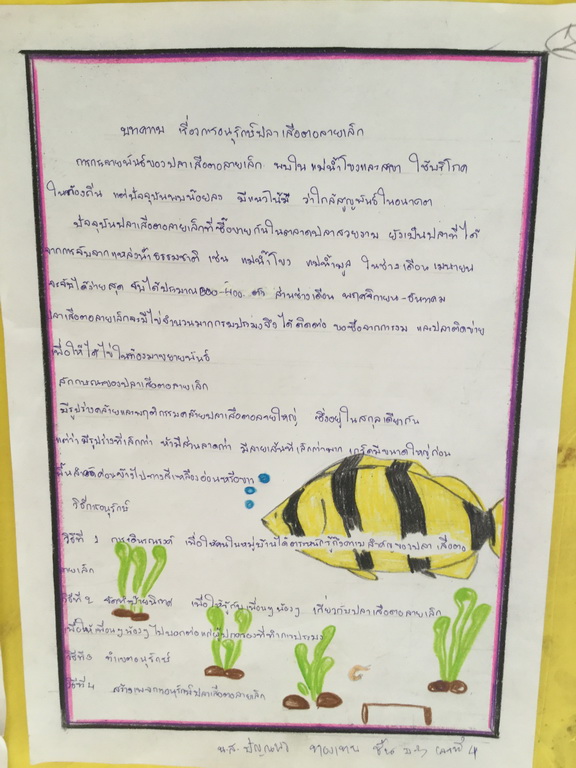 บทความ เรื่องการอนุรักษ์ปลาเสือตอลายเล็ก
การกระจายพันธ์ของปลาเสือตอลายเล็ก พบในแม่น้ำโขงและสาขา ใช้บริโภค
ในท้องถิ่น แต่ปัจจุบันพบน้อยลง มีแนวโน้มที่ ว่าใกล้สูญพันธ์ในอนาคต
ปัจจุบันปลาเสือตอลายเล็กที่ซื้อขายกันในตลาดปลาสวยงาม ยังเป็นปลาที่ได้
จากการจับจากแหล่งน้ำธรรมชาติ เช่น แม่น้ำโขง แม่น้ำมูล ในช่วงเดือน เมษายน
จะจับได้ง่ายสุด จับได้ประมาณ 300-400 ตัว ส่วนช่วงเดือน พฤศจิกายน-ธันวาคม
ปลาเสือตอลายเล็กจะมีไข่จำนวนมากกรมประมงจึงได้ติดต่อ ขอซื้อจาก และปลาติดข่าย
เพื่อให้ได้ไข่ในท้องมาขยายพันธ์
ลักษณะของปลาเสือตอลายเล็ก
มีรูปร่างคล้ายและพฤติกรรมคล้ายปลาเสือตอลายใหญ่ ซึ่งอยู่ในสกุลเดียวกัน
แต่ว่ามีรูปร่างที่เล็กกว่า หัวมีส่วนลาดกว่า มีลายเส้นที่เล็กกว่ามาก เกร็ดมีขนาดใหญ่ก่อน
พื้นลำตัวค่อนข้างไปทางสีเหลืองอ่อนหรือขาว
วิธีการอนุรักษ์
วิธีที่ 1 การรณรงค์ เพื่อให้คนในหมู่บ้านได้ตระหนักรู้ถึงความสำคัญของปลา เสือตอ
ลายเล็ก
วิธีที่ 2 จัดทำป้ายนิเทศ เพื่อให้รู้กับเพื่อนๆน้องๆ เกี่ยวกับปลาเสือตอลายเล็ก
เพื่อให้เพื่อนๆน้องๆไปบอกต่อแก่ผู้ปกครองที่ทำการประมง
วิธีที่ 3 ทำเขตอนุรักษ์
วิธีที่ 4 สร้างเพจการอนุรักษ์ปลาเสือตอลายเล็ก
น.ส. ชั้น เลขที่ 4